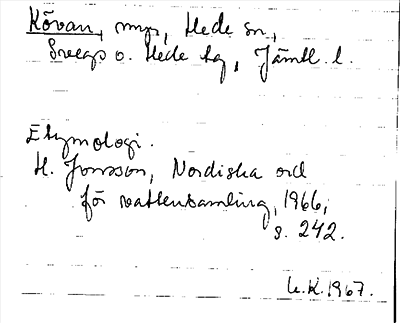 Kövan, myr, Hede sn,
Svegs o. Hede tg, Jämtl. l.
Etymologi.
H. Jonsson, Nordiska ord
för vattensamling, 1966,
s. 242.
U.K. 1967.